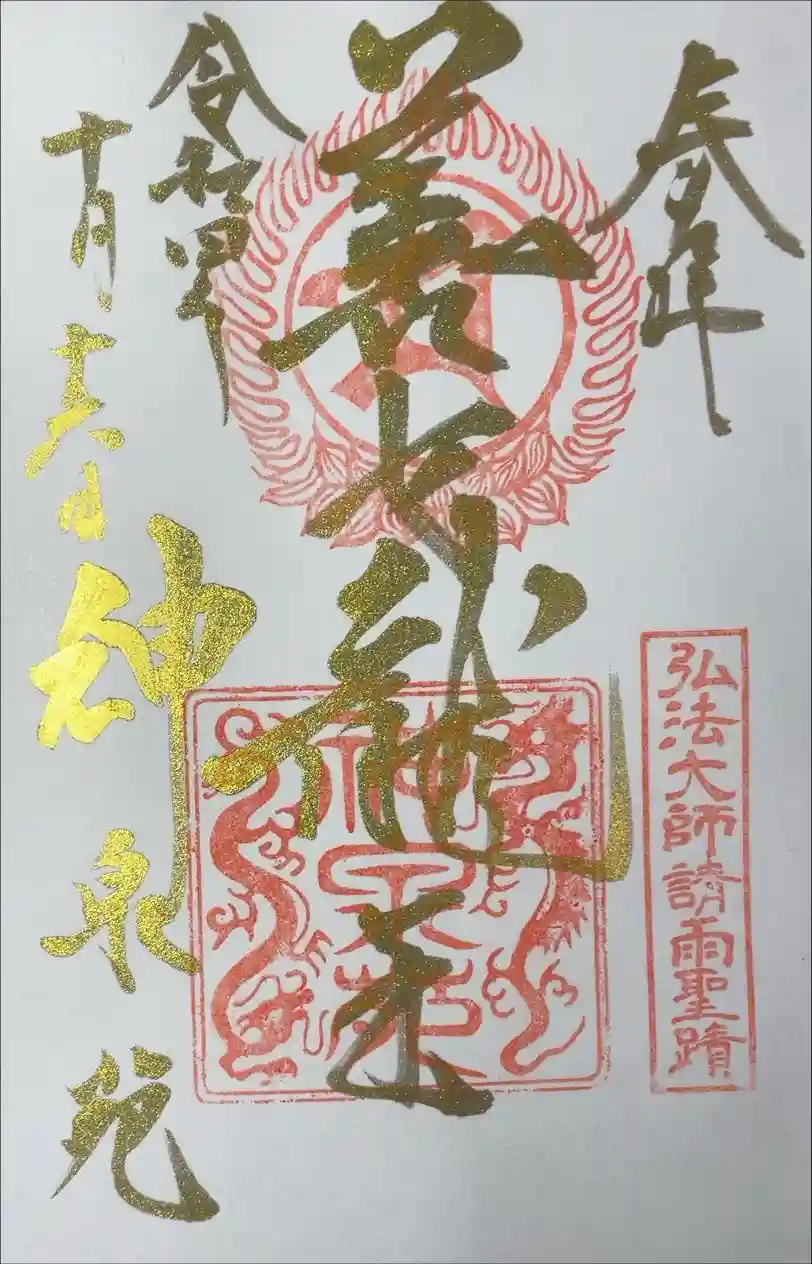 奉拝
弘法大師請雨聖蹟
善女龍王
神泉苑
令和四年
十月十六日
神泉苑